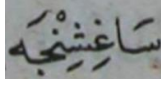 سَاغِشِنْجَه